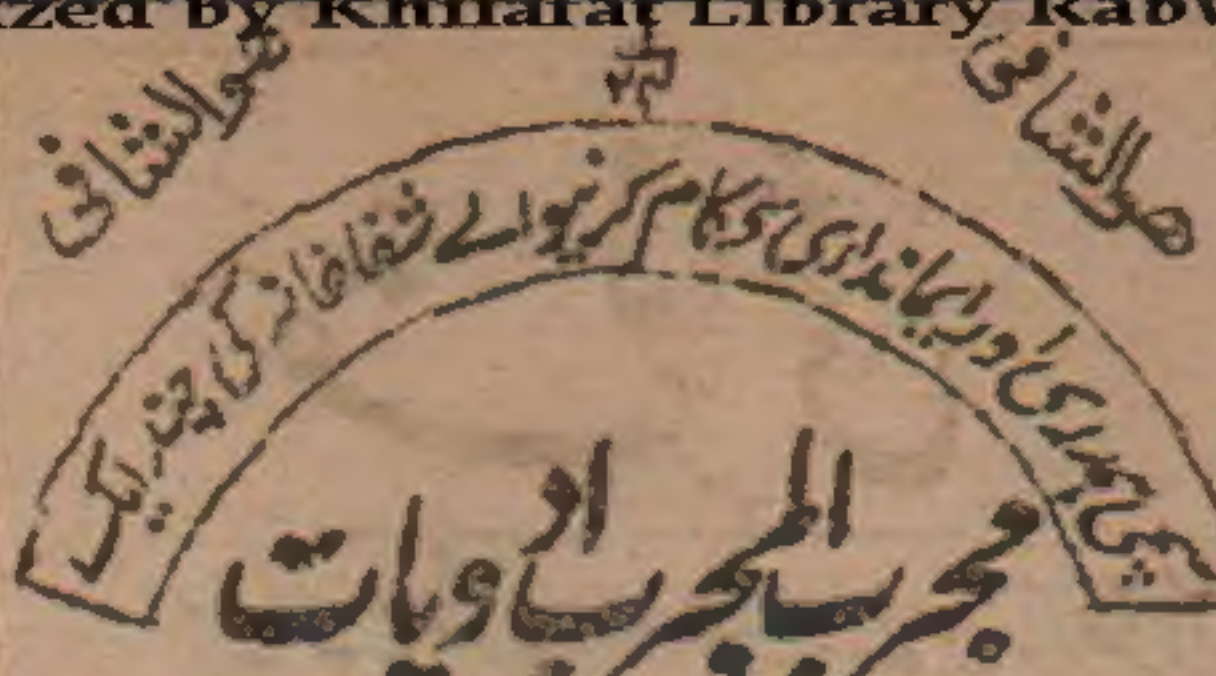 ized by Khilafat Library Rabw
ھوالشافی
ھوالشافی
ہمدردی اور ایمانداری سی کام کرنیوالے شفاخانہ کی چند ایک
مجرب المجرب ادویات